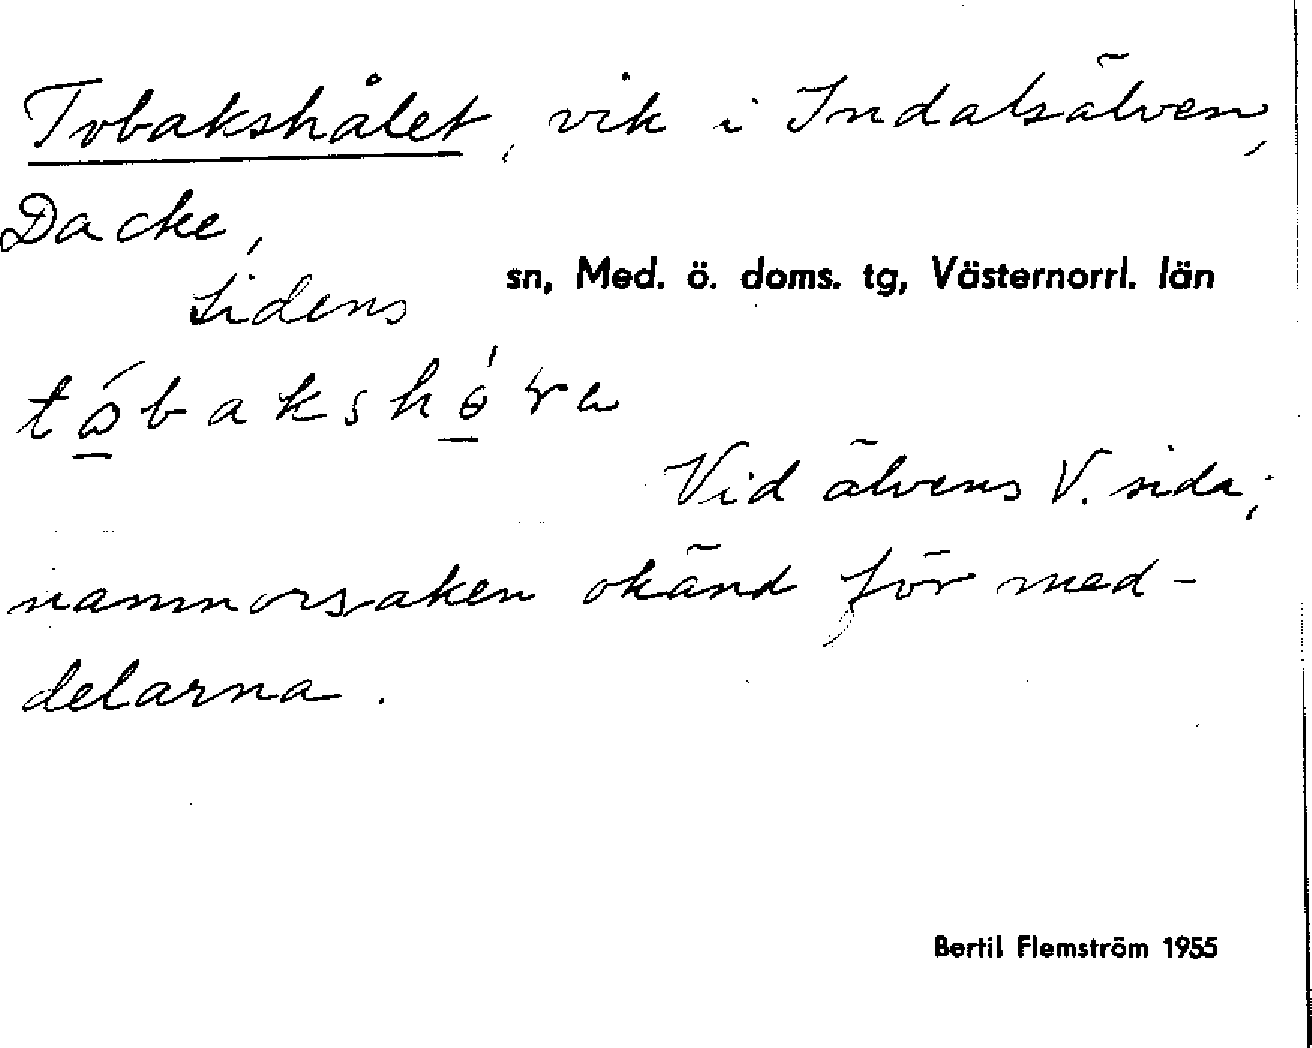 Tobakshålet, vik i Indalsälven,
Dacke,
Lidens sn, Med. ö. doms. tg, Västernorrl. län
Vid älvens V. sida;
namnorsaken okänd för med-
delarna.
Bertil Flemström 1955